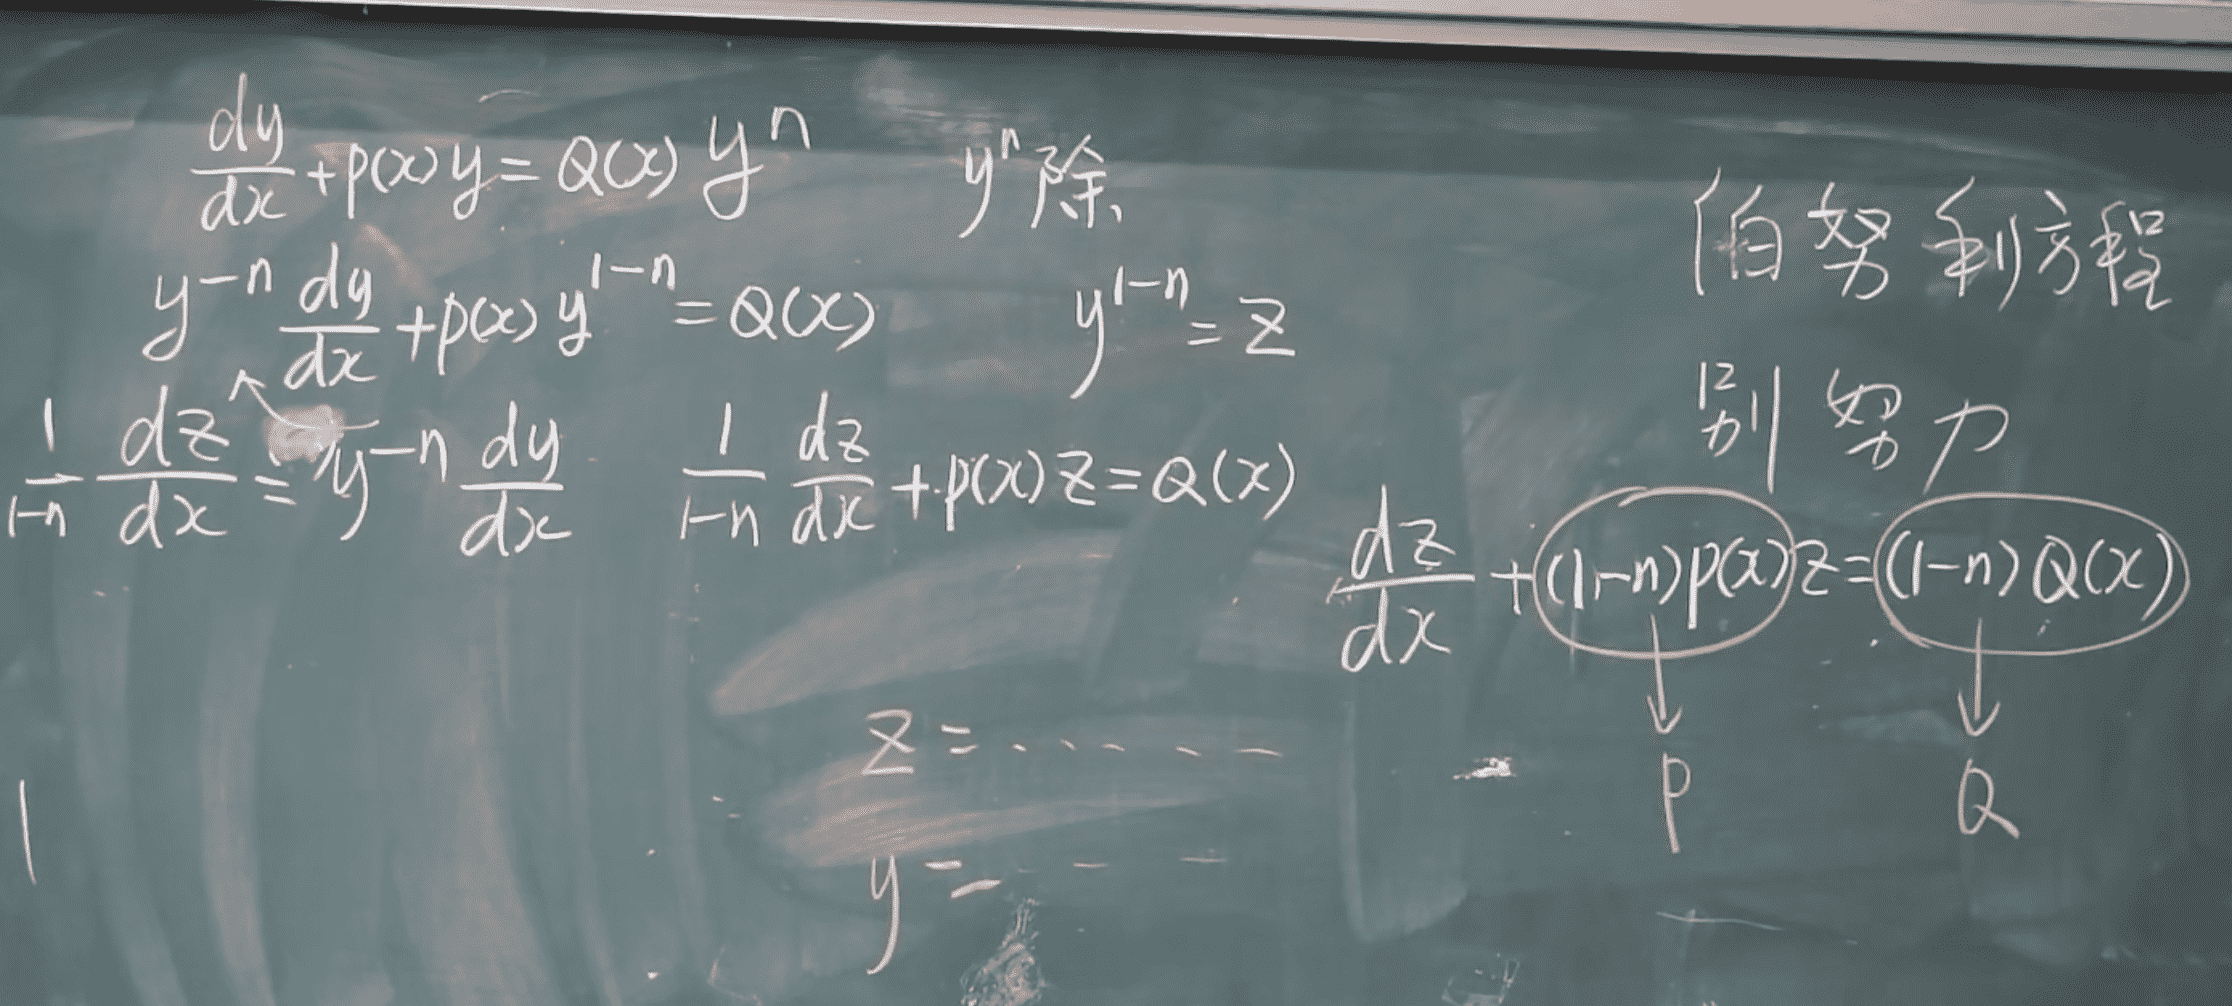 dy/dx + p(x) y = Q(x) yⁿ yⁿ除
伯努利方程
y⁻ⁿ dy/dx + p(x) y¹⁻ⁿ = Q(x) y¹⁻ⁿ = z
别努力
1/(1-n) dz/dx = y⁻ⁿ dy/dx 1/(1-n) dz/dx + p(x) z = Q(x)
dz/dx + (1-n)p(x) z = (1-n) Q(x)
z = ......
P Q
y = - -